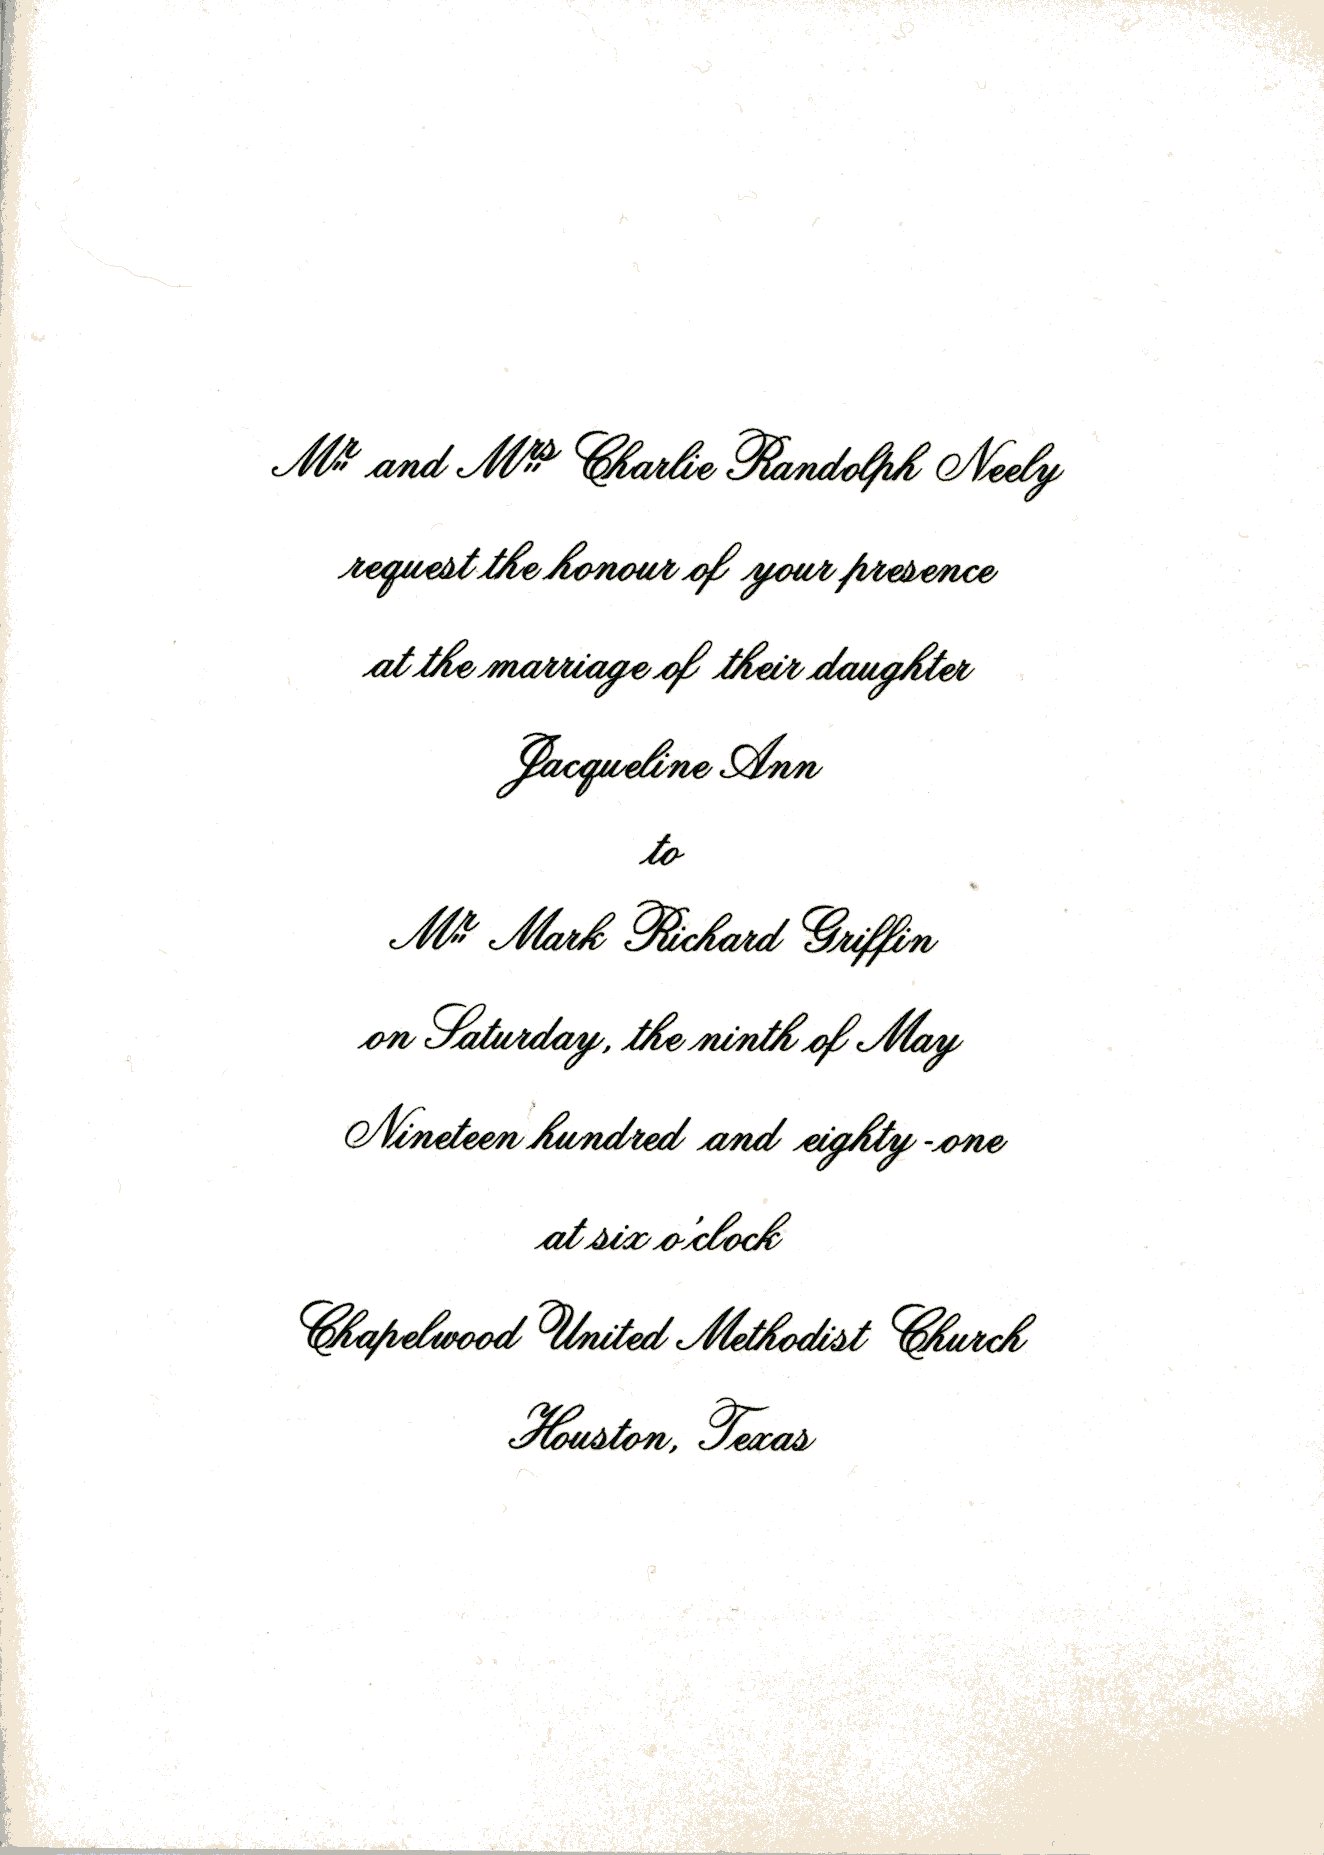 Mr. and Mrs. Charlie Randolph Neely
request the honour of your presence
at the marriage of their daughter
Jacqueline Ann
to
Mr. Mark Richard Griffin
on Saturday, the ninth of May
Nineteen hundred and eighty-one
at six o'clock
Chapelwood United Methodist Church
Houston, Texas